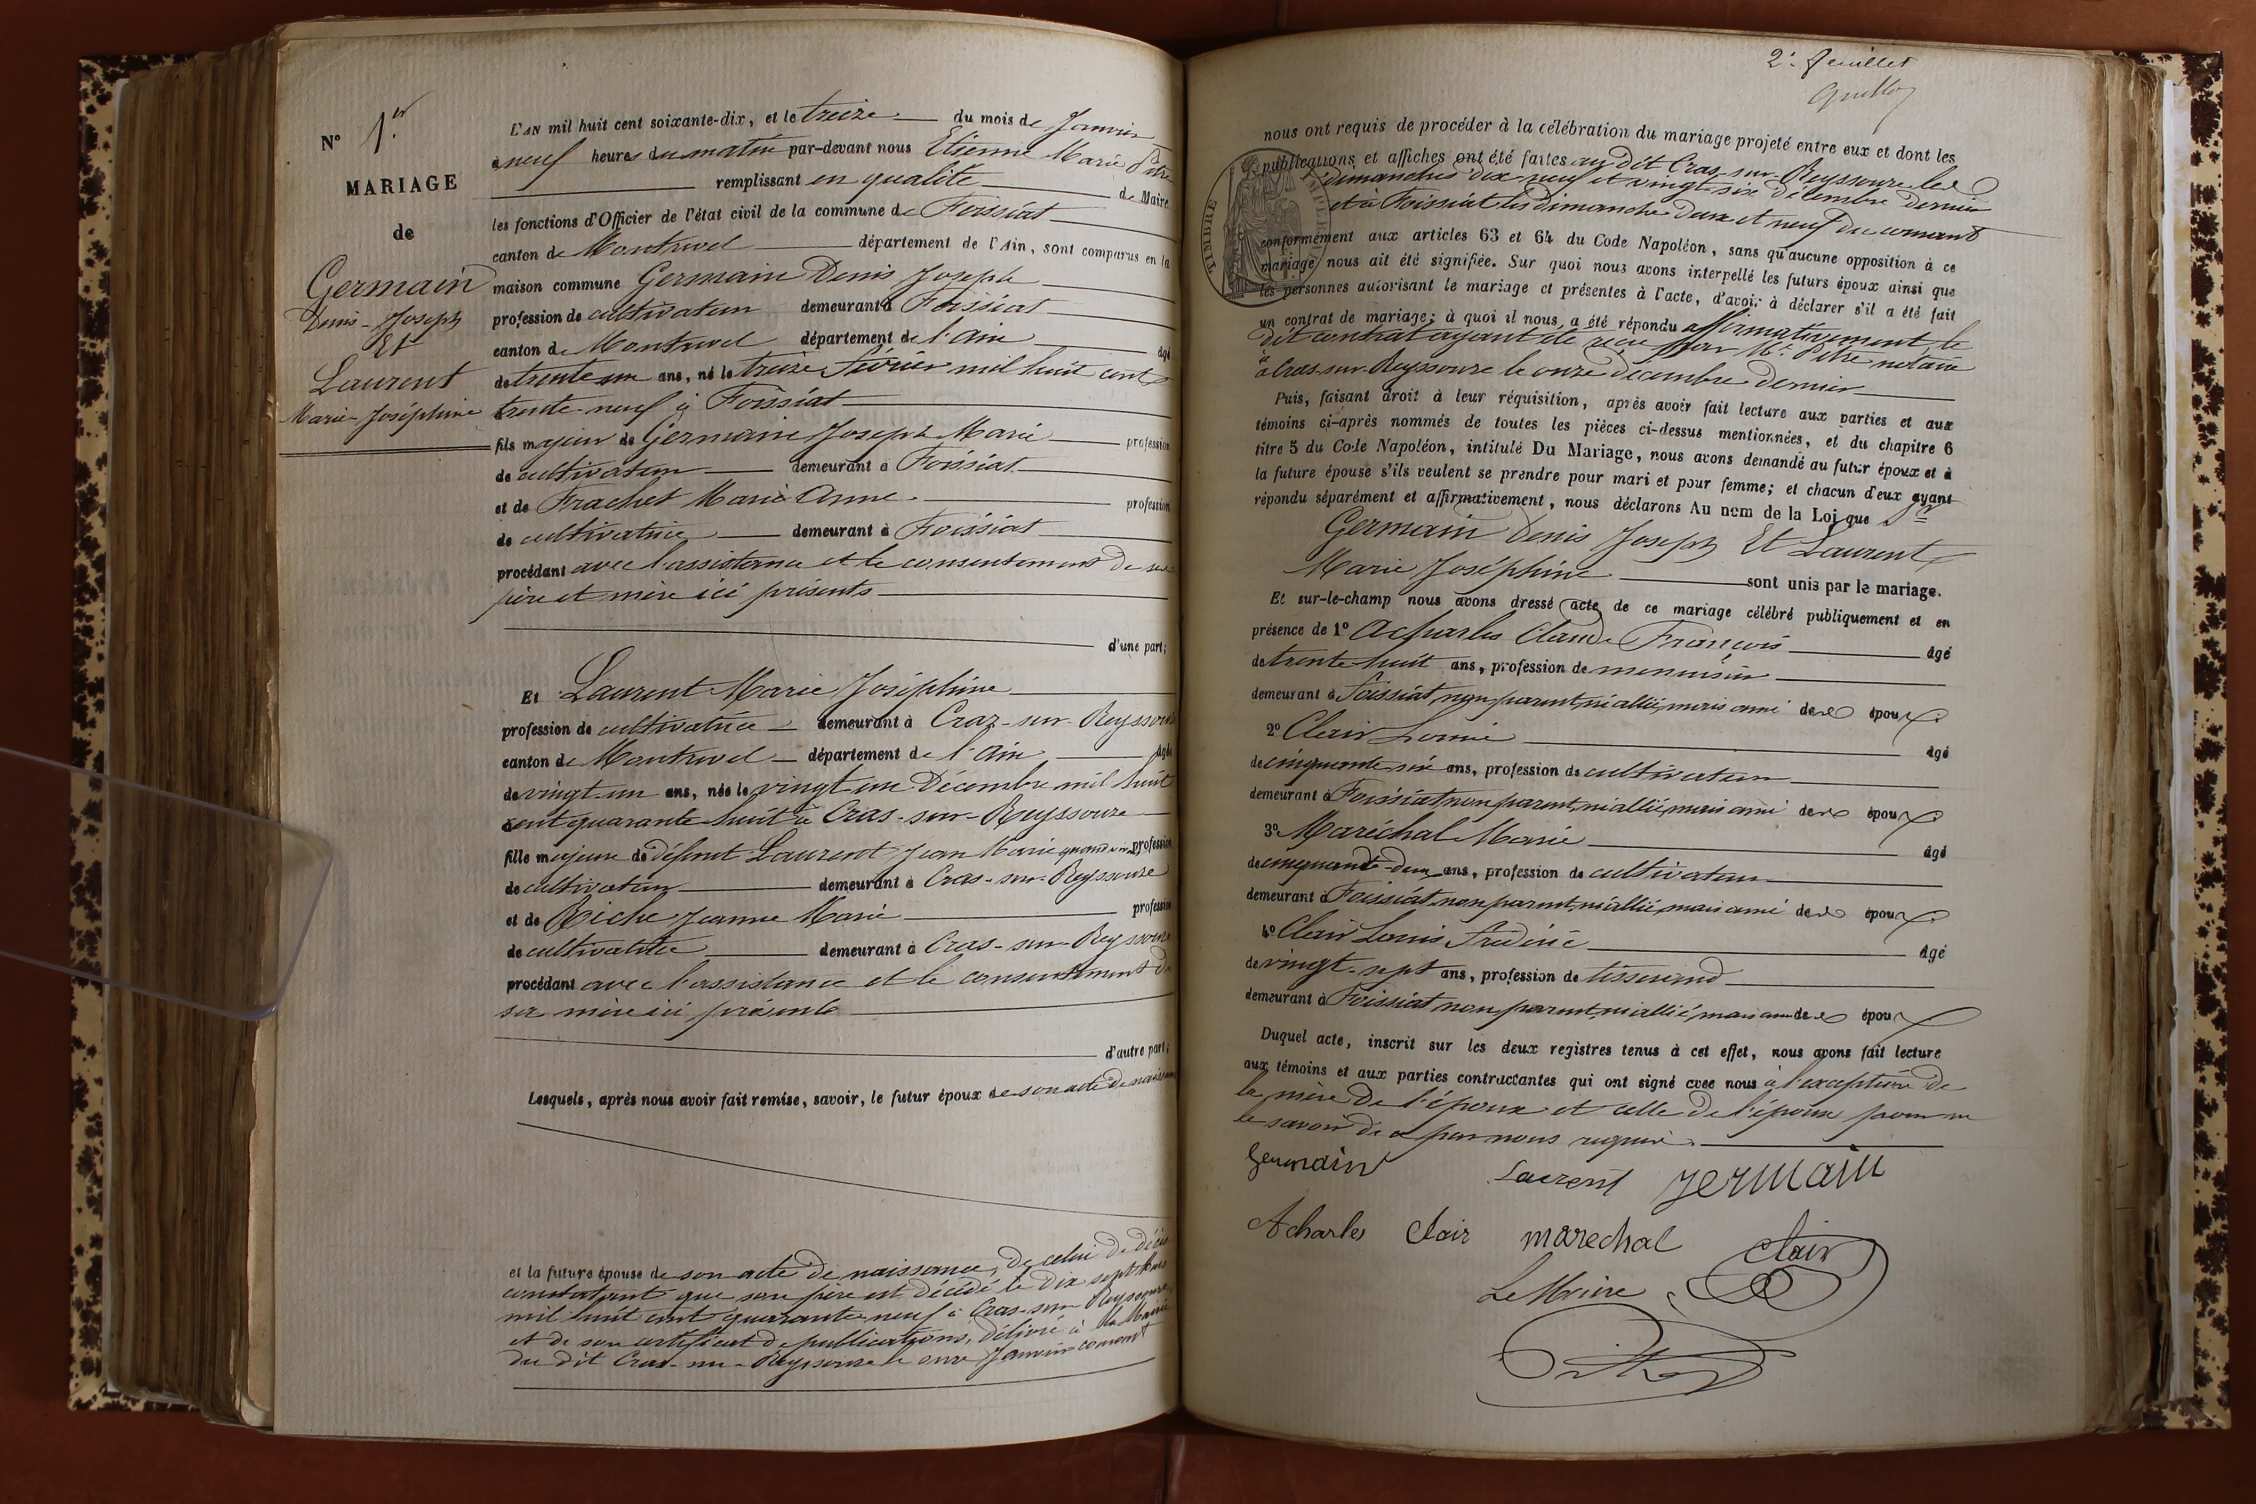 N° 1.er
MARIAGE
de
Germain
Denis-Joseph
Et
Laurent
Marie-Joséphine
L'AN mil huit cent soixante-dix, et le treize du mois de Janvier
à neuf heures du matin par-devant nous Etienne Marie Pitre
remplissant en qualité de Maire
les fonctions d'Officier de l'état civil de la commune de Foissiat
canton de Montrevel département de l'Ain, sont comparus en la
maison commune Germain Denis Joseph
profession de cultivateur demeurant à Foissiat
canton de Montrevel département de l'Ain âgé
de trente un ans, né le treize Février mil huit cent
trente-neuf à Foissiat
fils majeur de Germain Joseph Marie profession
de cultivateur demeurant à Foissiat
et de Frachet Marie Anne profession
de cultivatrice demeurant à Foissiat
procédant avec l'assistance et le consentement de ses
père et mère ici présents
d'une part;
Et Laurent Marie Joséphine
profession de cultivatrice demeurant à Cras-sur-Reyssouze
canton de Montrevel département de l'Ain âgée
de vingt-un ans, née le vingt un Décembre mil huit
cent quarante-huit à Cras-sur-Reyssouze
fille majeure de défunt Laurent Jean Marie quand vivait profession
de cultivateur demeurant à Cras-sur-Reyssouze
et de Riche Jeanne Marie profession
de cultivatrice demeurant à Cras-sur-Reyssouze
procédant avec l'assistance et le consentement de
sa mère ici présente
d'autre part;
Lesquels, après nous avoir fait remise, savoir, le futur époux de son acte de naissance
et la future épouse de son acte de naissance, de celui de décès
constatant que son père est décédé le dix sept
mil huit cent quarante neuf à Cras-sur-Reyssouze
et de son certificat de publications, délivré à la Mairie
du dit Cras-sur-Reyssouze le onze Janvier courant
2e feuillet
nous ont requis de procéder à la célébration du mariage projeté entre eux et dont les
publications et affiches ont été faites au dit Cras-sur-Reyssouze les
dimanches dix-neuf et vingt-six décembre dernier
et à Foissiat les Dimanche deux et neuf du courant
TIMBRE
conformément aux articles 63 et 64 du Code Napoléon, sans qu'aucune opposition à ce
mariage nous ait été signifiée. Sur quoi nous avons interpellé les futurs époux ainsi que
les personnes autorisant le mariage et présentes à l'acte, d'avoir à déclarer s'il a été fait
un contrat de mariage; à quoi il nous a été répondu affirmativement, le
dit contrat ayant été reçu par Me Pitre notaire
à Cras-sur-Reyssouze le onze décembre dernier
Puis, faisant droit à leur réquisition, après avoir fait lecture aux parties et aux
témoins ci-après nommés de toutes les pièces ci-dessus mentionnées, et du chapitre 6
titre 5 du Code Napoléon, intitulé Du Mariage, nous avons demandé au futur époux et à
la future épouse s'ils veulent se prendre pour mari et pour femme; et chacun d'eux ayant
répondu séparément et affirmativement, nous déclarons Au nom de la Loi que
Germain Denis Joseph Et Laurent
Marie Joséphine sont unis par le mariage.
Et sur-le-champ nous avons dressé acte de ce mariage célébré publiquement et en
présence de 1° Acharles Claude François âgé
de trente-huit ans, profession de menuisier
demeurant à Foissiat non parent, ni allié, mais ami des époux
2° Clair Louis âgé
de cinquante six ans, profession de cultivateur
demeurant à Foissiat non parent, ni allié, mais ami des époux
3° Maréchal Marie âgé
de cinquante-deux ans, profession de cultivateur
demeurant à Foissiat non parent, ni allié, mais ami des époux
4° Clair Louis Frédéric âgé
de vingt-sept ans, profession de tisserand
demeurant à Foissiat non parent, ni allié, mais ami des époux
Duquel acte, inscrit sur les deux registres tenus à cet effet, nous avons fait lecture
aux témoins et aux parties contractantes qui ont signé avec nous à l'exception de
la mère de l'époux et celle de l'épouse pour ne
le savoir de ce par nous requis.
Germain Laurent Germain
Acharles Clair marechal Clair
Le Maire
Pitre